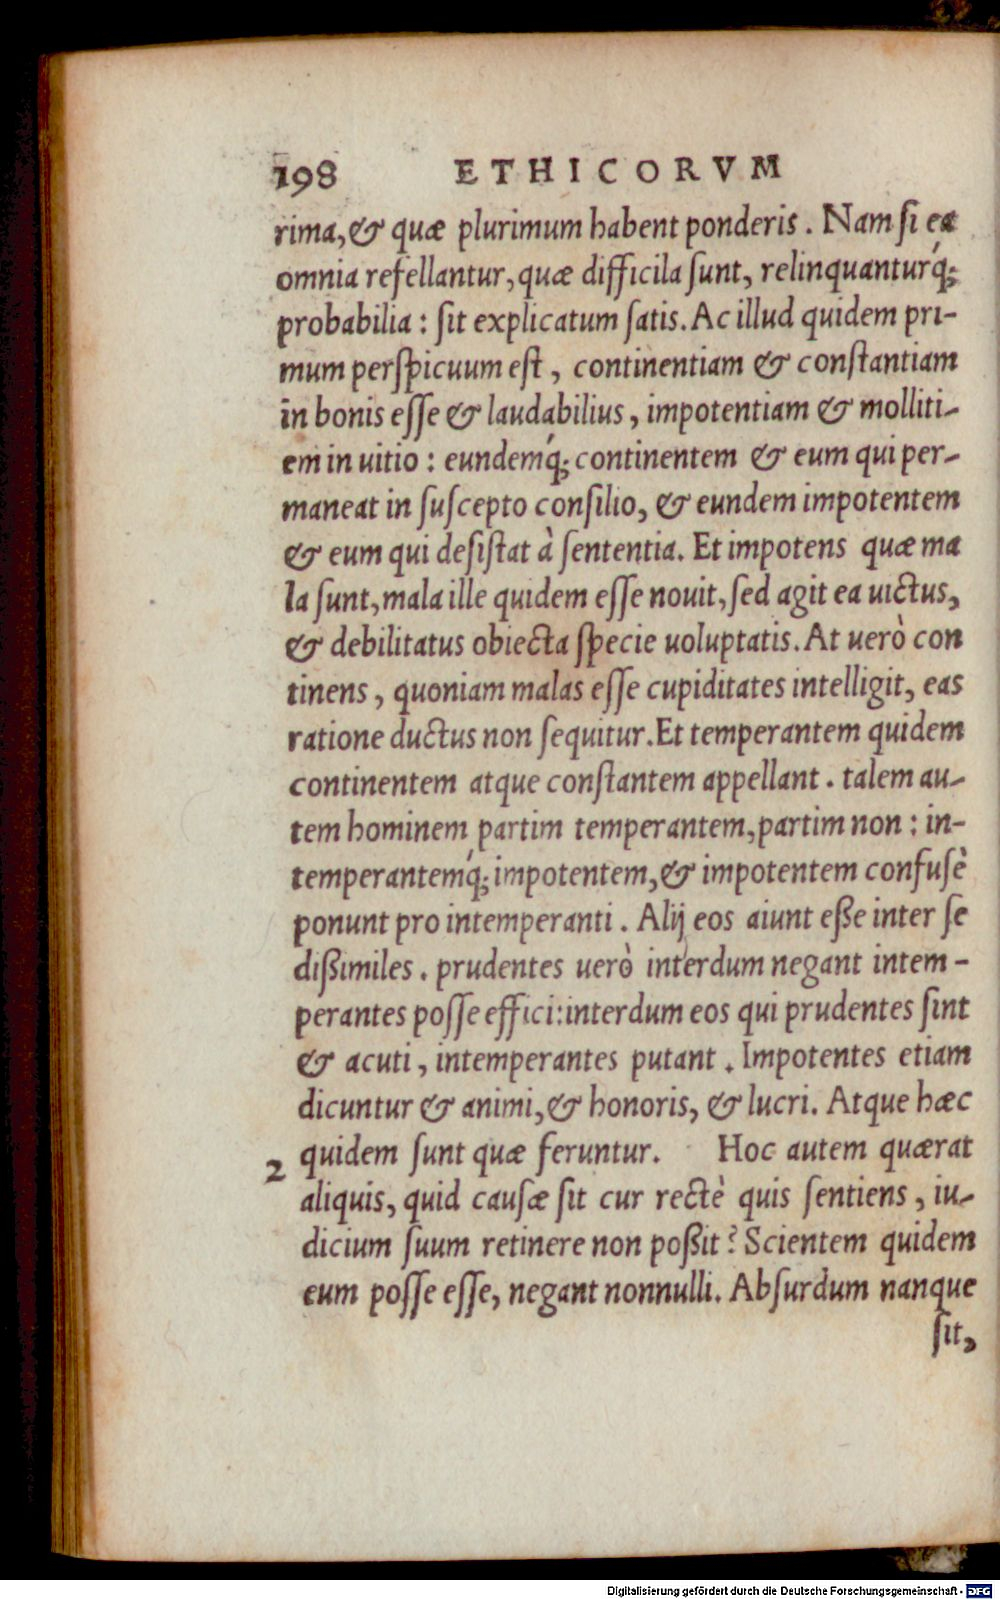 198 ETHICORVM
rima, & quæ plurimum habent ponderis. Nam si ea
omnia refellantur, quæ difficila sunt, relinquanturq́;
probabilia: sit explicatum satis. Ac illud quidem pri-
mum perspicuum est, continentiam & constantiam
in bonis esse & laudabilius, impotentiam & molliti-
em in uitio: eundemq́; continentem & eum qui per-
maneat in suscepto consilio, & eundem impotentem
& eum qui desistat à sententia. Et impotens quæ ma
la sunt, mala ille quidem esse nouit, sed agit ea uictus,
& debilitatus obiecta specie uoluptatis. At uerò con
tinens, quoniam malas esse cupiditates intelligit, eas
ratione ductus non sequitur. Et temperantem quidem
continentem atque constantem appellant. talem au-
tem hominem partim temperantem, partim non: in-
temperantemq́; impotentem, & impotentem confusè
ponunt pro intemperanti. Alij eos aiunt eße inter se
dißimiles. prudentes uerò interdum negant intem-
perantes posse effici: interdum eos qui prudentes sint
& acuti, intemperantes putant. Impotentes etiam
dicuntur & animi, & honoris, & lucri. Atque hæc
2 quidem sunt quæ feruntur. Hoc autem quærat
aliquis, quid causæ sit cur rectè quis sentiens, iu-
dicium suum retinere non poßit? Scientem quidem
eum posse esse, negant nonnulli. Absurdum nanque
sit,
Digitalisierung gefördert durch die Deutsche Forschungsgemeinschaft - DFG